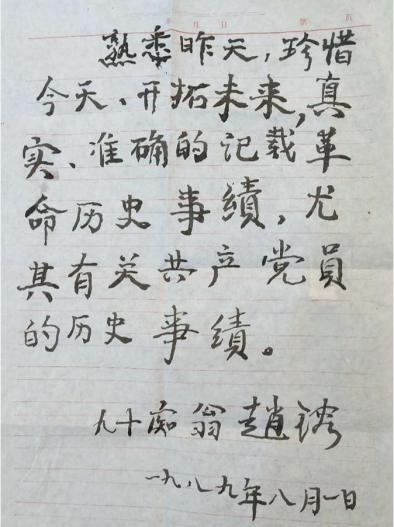 年 月 日 第 页
熟悉昨天,珍惜
今天、开拓未来,真
实、准确的记载革
命历史事績,尤
其有关共产党員
的历史事績。
九十痴翁趙镕
一九八九年八月一日